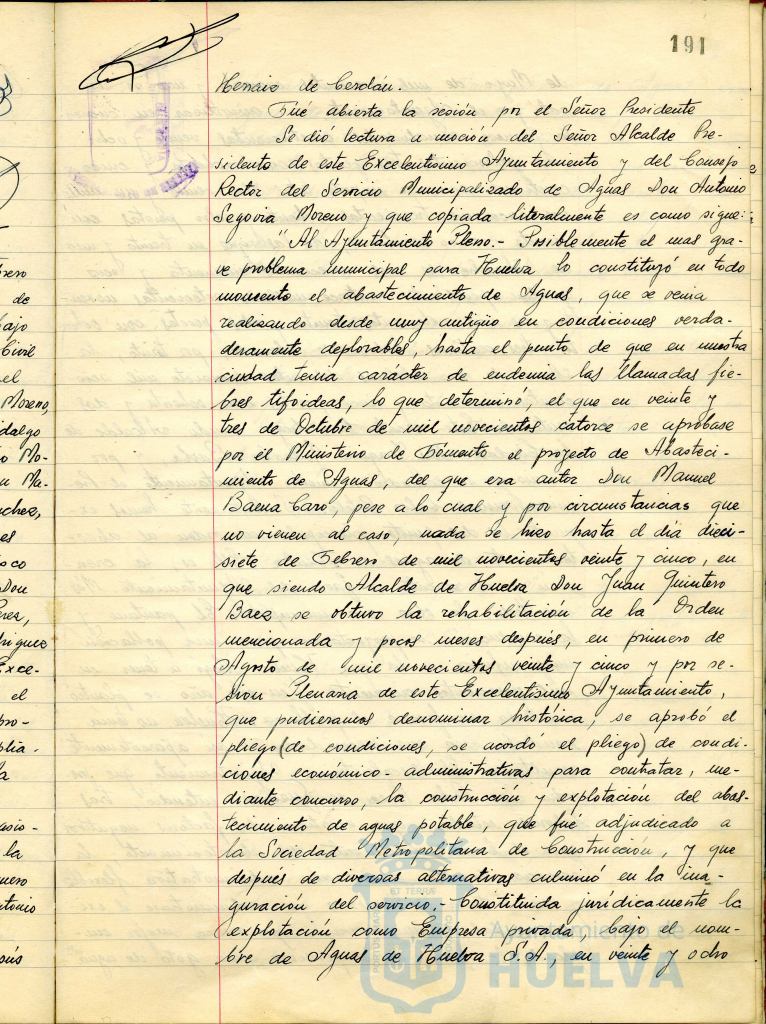 191
Henaio de Cerdán.
Fué abierta la sesión por el Señor Presidente
Se dió lectura a moción del Señor Alcalde Pre-
sidente de este Excelentisimo Ayuntamiento y del Consejo
Rector del Servicio Municipalizado de Aguas Don Antonio
Segovia Moreno y que copiada literalmente es como sigue:
" Al Ayuntamiento Pleno.- Posiblemente el mas gra-
ve problema municipal para Huelva lo constituyó en todo
momento el abastecimiento de Aguas, que se venia
realizando desde muy antigüo en condiciones verda-
deramente deplorables, hasta el punto de que en nuestra
ciudad tenia carácter de endemia las llamadas fie-
bres tifoideas, lo que determinó, el que en veinte y
tres de Octubre de mil novecientos catorce se aprobase
por el Ministerio de Fomento el proyecto de Abasteci-
miento de Aguas, del que era autor Don Manuel
Baena Caro, pese a lo cual y por circunstancias que
no vienen al caso, nada se hizo hasta el día dieci-
siete de Febrero de mil novecientos veinte y cinco, en
que siendo Alcalde de Huelva Don Juan Quintero
Baez se obtuvo la rehabilitación de la Orden
mencionada y pocos meses después, en primero de
Agosto de mil novecientos veinte y cinco y por se-
sion Plenaria de este Excelentisimo Ayuntamiento,
que pudieramos denominar histórica, se aprobó el
pliego (de condiciones, se acordó el pliego) de condi-
ciones económico-administrativas para contratar, me-
diante concurso, la construcción y explotación del abas-
tecimiento de aguas potable, que fué adjudicado a
la Sociedad Metropolitana de Construcción, y que
después de diversas alternativas culminó en la ina-
guración del servicio.- Constituida jurídicamente la
explotación como Empresa privada, bajo el nom-
bre de Aguas de Huelva S.A., en veinte y ocho
brero
de
bajo
Civil
el
Moreno,
idalgo
Mo-
Ma-
nchez,
es
Don
Exce-
el
pro-
la
la
Ayuntamiento de
HUELVA